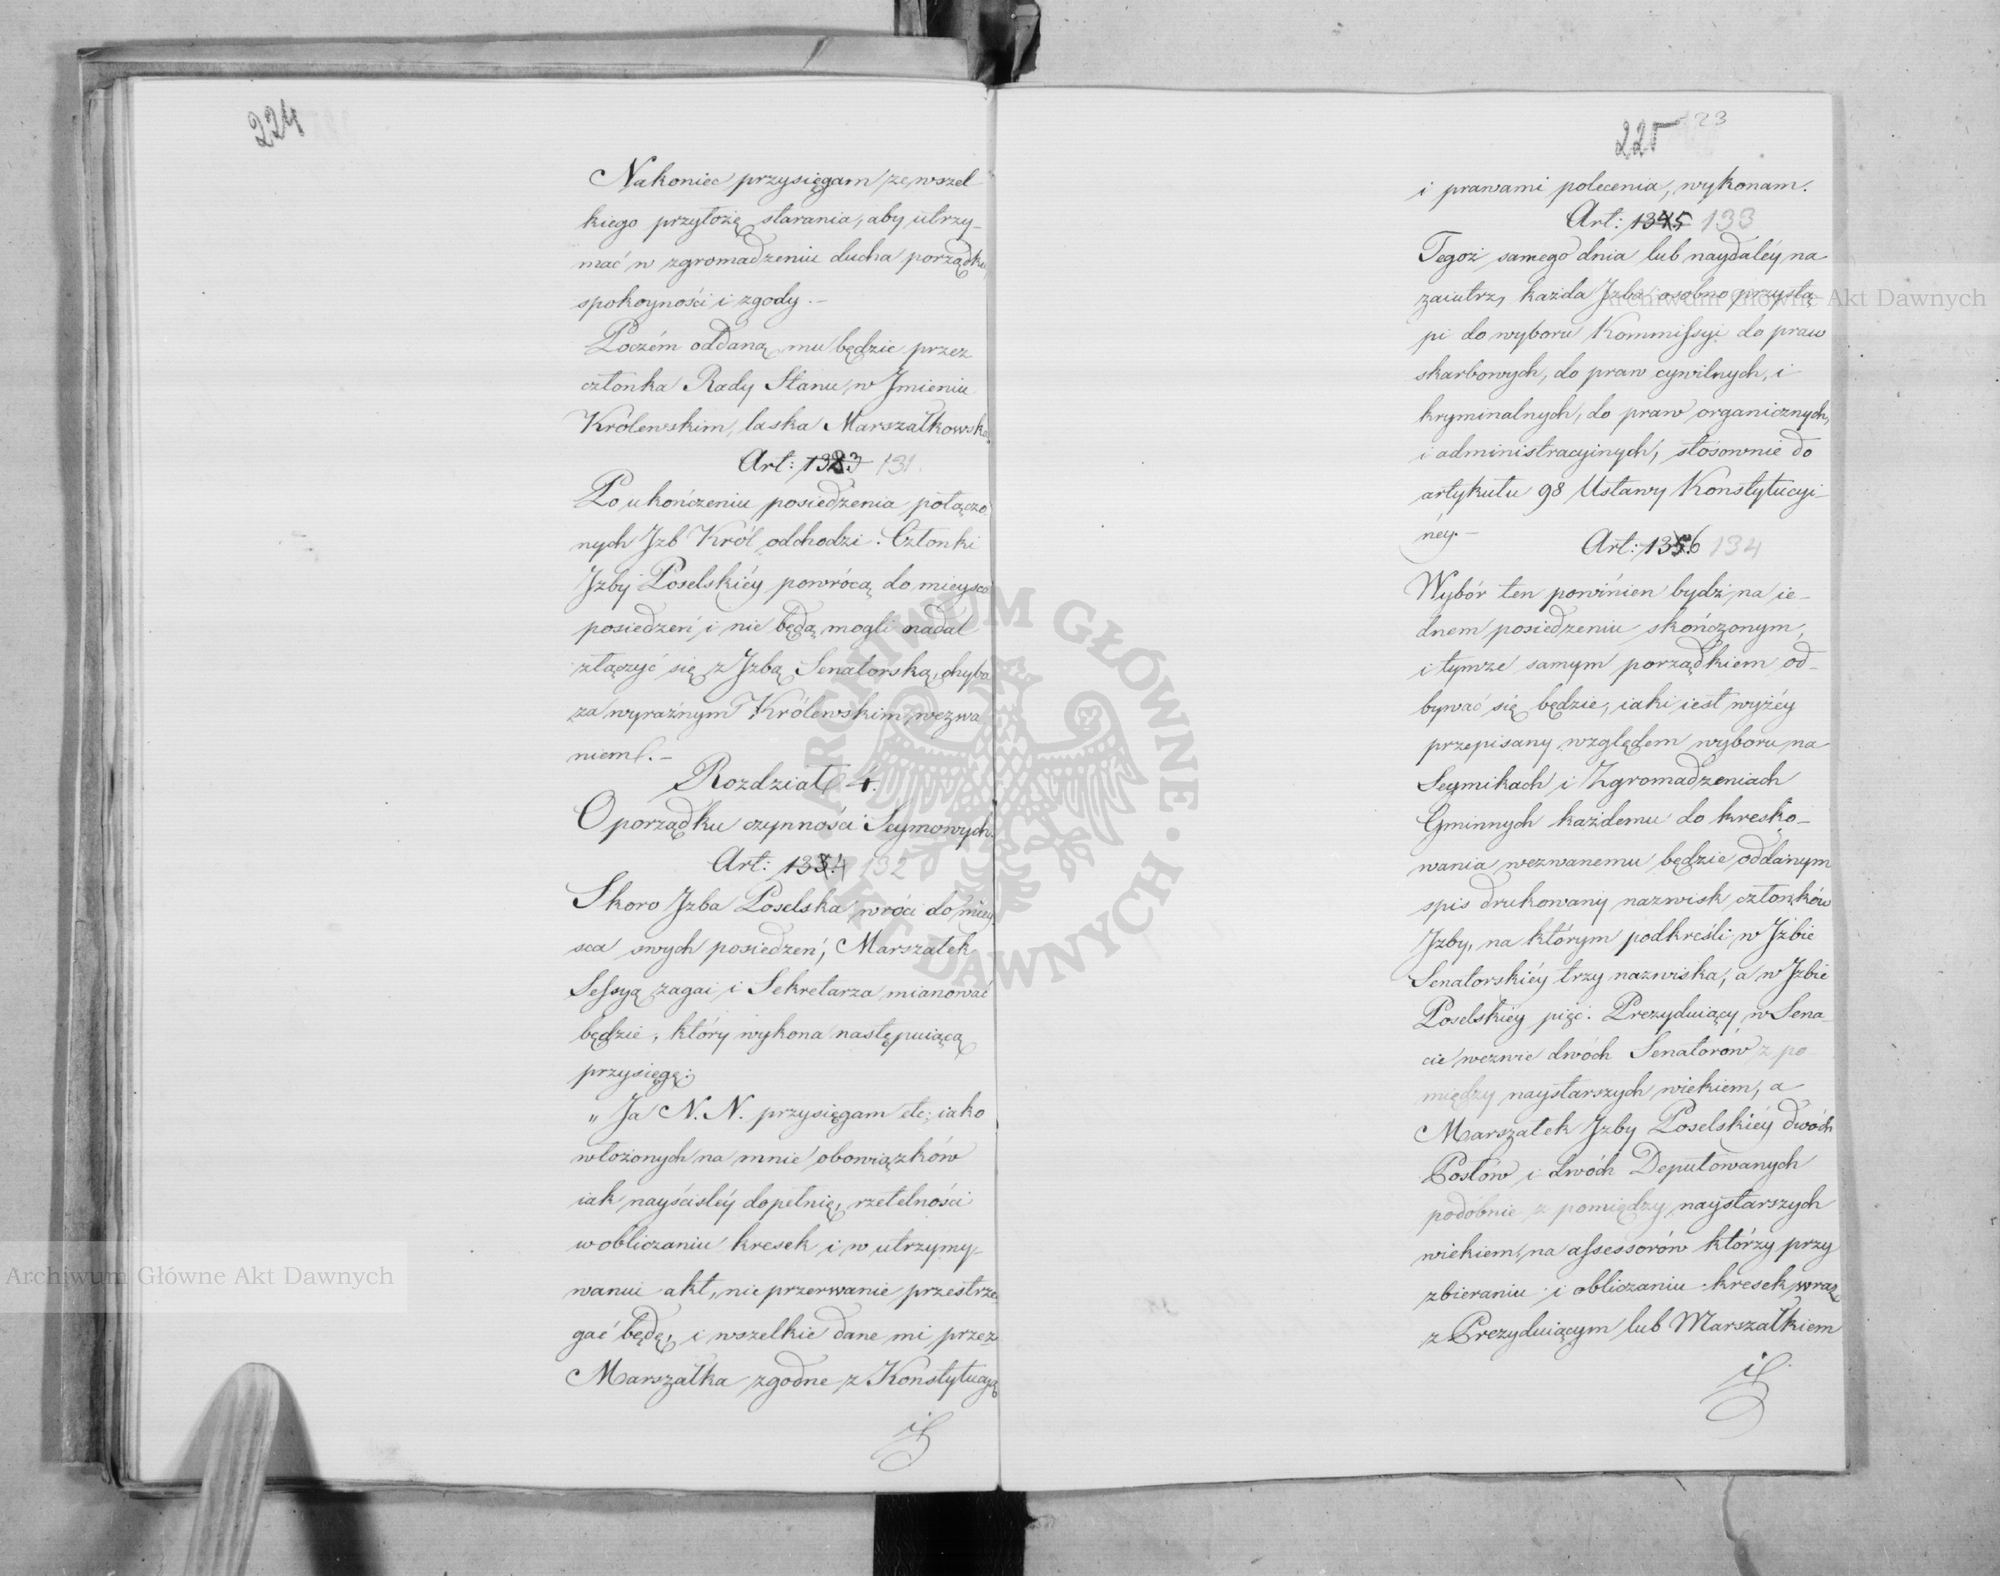 224
Nakoniec przysięgam, że wszel
kiego przyłożę starania, aby utrzy-
mać w zgromadzeniu ducha porządku,
spokoyności i zgody. –
Poczém oddaną mu będzie przez
członka Rady Stanu, w Jmieniu
Królewskim, laska Marszałkowska.
Art: 131.
Po ukończeniu posiedzenia połączo
nych Jzb Król odchodzi. Członki
Jzby Poselskiéy powrócą do mieysca
posiedzeń, i nie będą mogli nadal
złączyć się z Jzbą Senatorską, chyba
za wyraźnym Królewskim wezwa
niem. –
Rozdział 4.
O porządku czynności Seymowych.
Art: 132
Skoro Jzba Poselska wróci do miey
sca swych posiedzeń, Marszałek
Sessyą zagai i Sekretarza mianować
będzie, który wykona następuiącą
przysięgę:
„Ja N. N. przysięgam etc; iako
włożonych na mnie obowiązków
iak nayściśléy dopełnię, rzetelności
w obliczaniu kresek i w utrzymy-
waniu akt, nieprzerwanie przestrze
gać będę, i wszelkie dane mi przez
Marszałka zgodne z Konstytucyą
i
225
123
i prawami polecenia, wykonam.
Art: 133
Tegoż samego dnia lub naydaléy na
zaiutrz, każda Jzba osobno przystą
pi do wyboru Kommissyi do praw
skarbowych, do praw cywilnych, i
kryminalnych, do praw organicznych,
i administracyinych, stósownie do
artykułu 98 Ustawy Konstytucyi-
néy. –
Art: 134
Wybór ten powinien bydź na ie-
dnem posiedzeniu skończonym,
i tymże samym porządkiem od-
bywać się będzie, iaki iest wyżéy
przepisany względem wyboru na
Seymikach i Zgromadzeniach
Gminnych każdemu do kresko-
wania wezwanemu będzie oddanym
spis drukowany nazwisk członków
Jzby, na którym podkreśli w Jzbie
Senatorskiéy trzy nazwiska, a w Jzbie
Poselskiéy pięć. Prezyduiący w Sena-
cie wezwie dwóch Senatorów z po-
między naystarszych wiekiem, a
Marszałek Jzby Poselskiéy dwóch
Posłów i dwóch Deputowanych
podobnie z pomiędzy naystarszych
wiekiem, na assessorów którzy przy
zbieraniu i obliczaniu kresek, wraz
z Prezyduiącym lub Marszałkiem
i
Archiwum Główne Akt Dawnych
Archiwum Główne Akt Dawnych
ARCHIWUM GŁÓWNE AKT DAWNYCH